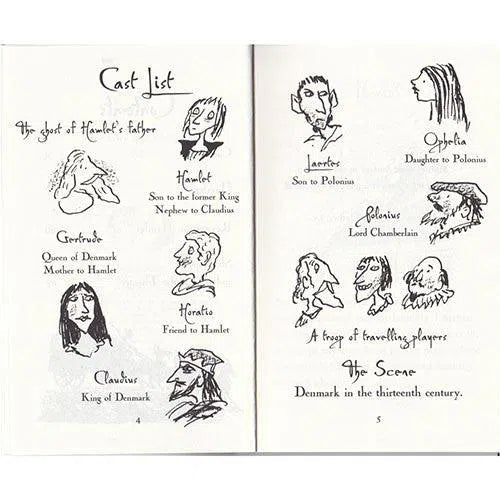 Cast List
The ghost of Hamlet's father
Hamlet
Son to the former King
Nephew to Claudius
Gertrude
Queen of Denmark
Mother to Hamlet
Horatio
Friend to Hamlet
Claudius
King of Denmark
4
Laertes
Son to Polonius
Ophelia
Daughter to Polonius
Polonius
Lord Chamberlain
A troop of travelling players
The Scene
Denmark in the thirteenth century.
5